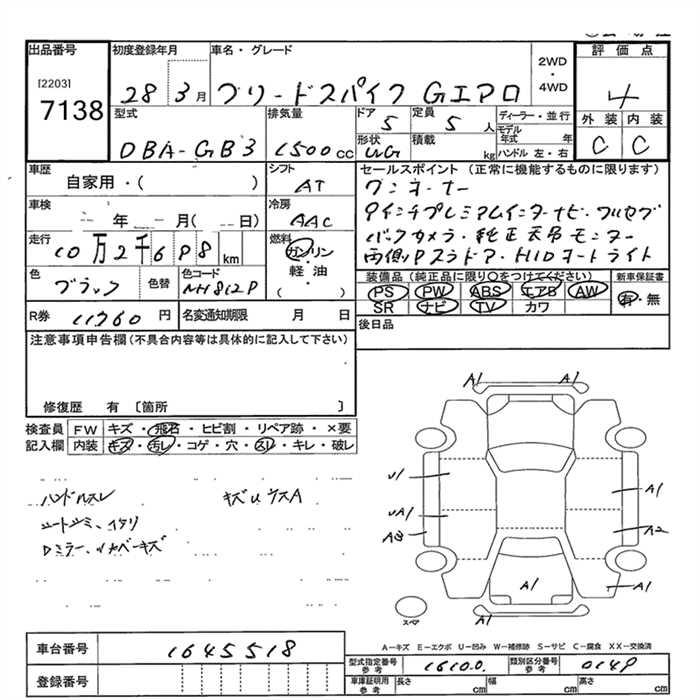 出品番号
[2203]
7138
初度登録年月
28 3月
車名・グレード
フリードスパイク Gエアロ
2WD
・
4WD
評価点
4
型式
DBA-GB3
排気量
1500cc
ドア
5
定員
5人
形状
WG
積載
kg
ディーラー・並行
モデル年式 年
ハンドル 左・右
外装 内装
C C
車歴
自家用・( )
シフト
AT
車検
年 月( 日)
冷房
AAC
走行
10万2千698km
燃料
ガソリン
・
軽油
( )
色
ブラック
色替
色コード
NH812P
R券
11760円
名変通知期限 月 日
セールスポイント(正常に機能するものに限ります)
ワンオーナー
9インチプレミアムインターナビ・フルセグ
バックカメラ・純正天吊モニター
両側Pスラドア・HIDオートライト
装備品(純正品に限り○をつけてください)
PS PW ABS エアB AW
SR ナビ TV カワ
新車保証書
有・無
後日品
注意事項申告欄(不具合内容等は具体的に記入して下さい)
修復歴 有 〔箇所 〕
検査員
記入欄
FW キズ・飛石・ヒビ割・リペア跡・×要
内装 キズ・汚レ・コゲ・穴・スレ・キレ・破レ
ハンドルスレ キズUウスA
シートシミ、
A1 A1
U1
UA1
A3
A1
A2
A1
A1
A1
スペア
A-キズ E-エクボ U-凹み W-補修跡 S-サビ C-腐食 XX-交換済
車台番号
1645518
登録番号
型式指定番号
参考
16100
類別区分番号
参考
0149
車庫証明用
参考
長さ cm 幅 cm 高さ cm